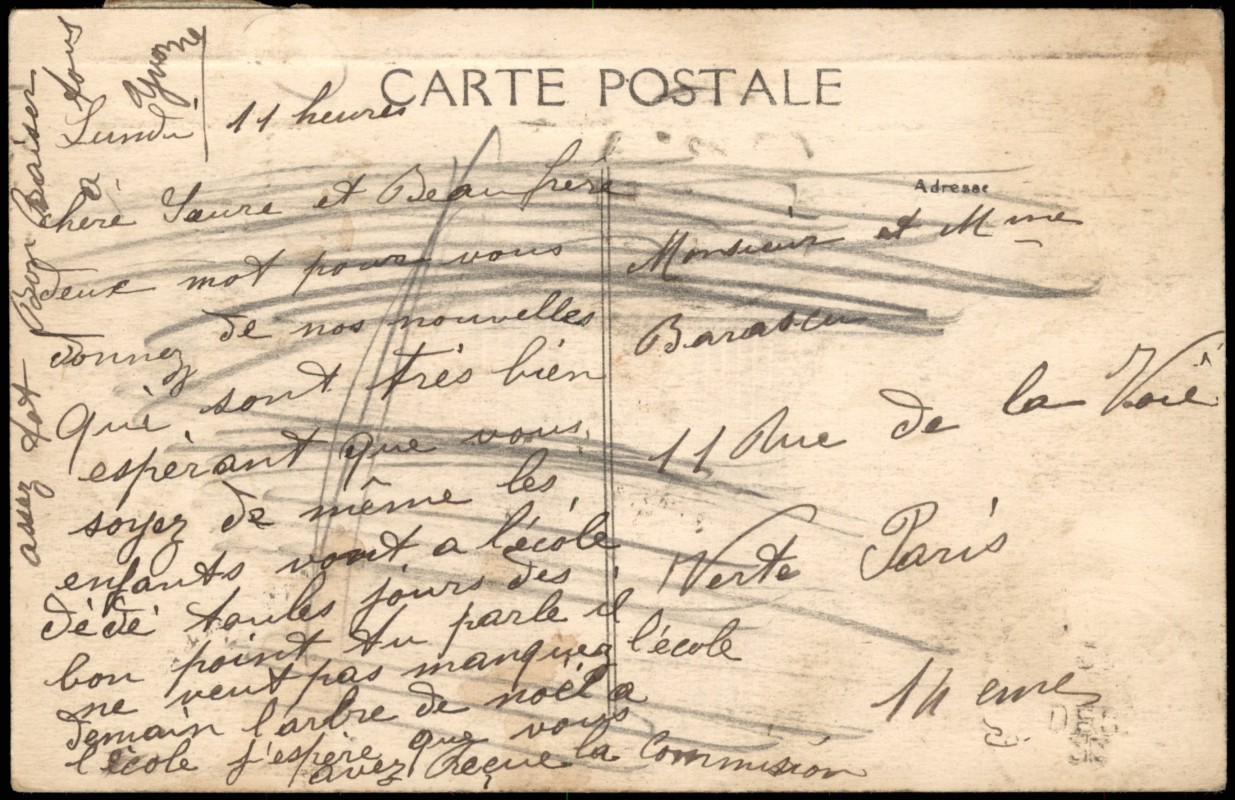 CARTE POSTALE
Lundi 11 heures
chère Saure et Beau frère
deux mot pour vous
donnez de nos nouvelles
qui sont très bien
espèrant que vous
soyez de même les
enfants vont a l'école
dèdè toules jours des
bon point tu parle il
ne veut pas manquez l'école
demain l'arbre de noël a
l'école j'espère que vous
avez Reçue la Commision
assez tot Bon Baiser
à tous
Yvonne
Adresse
Monsieur et Mme
11 Rue de la Voie
Verte Paris
14 eme